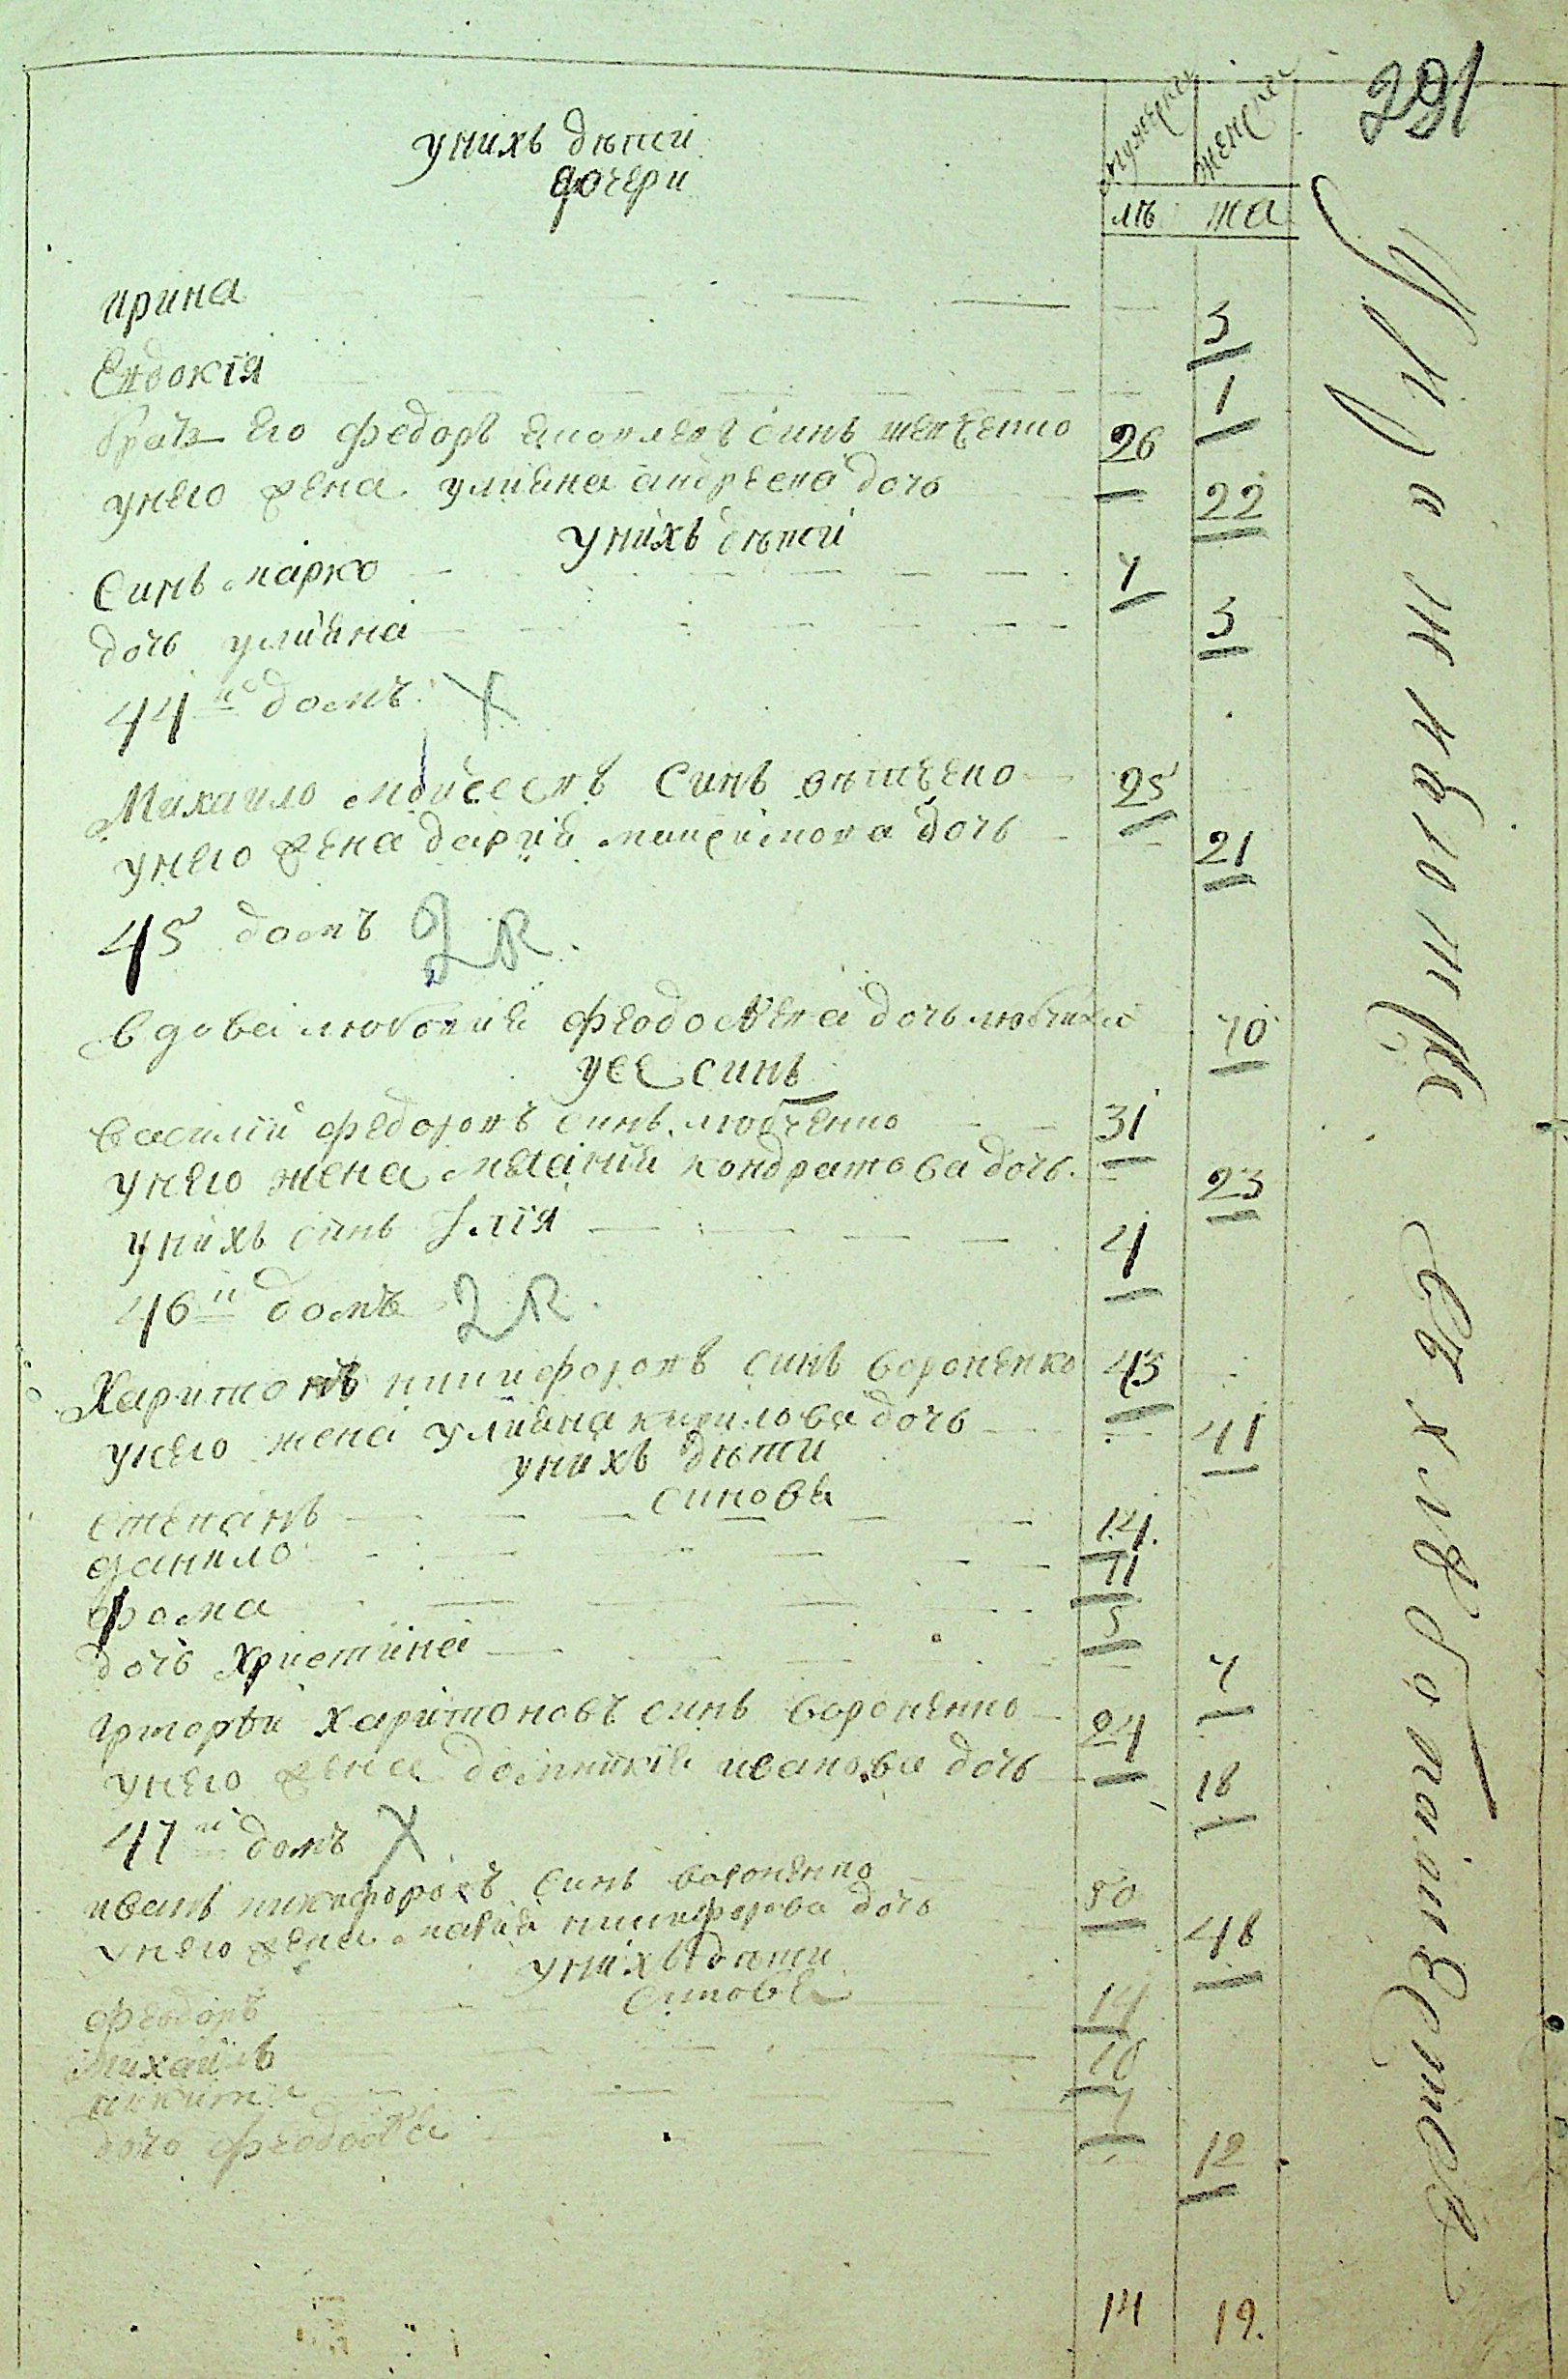 291
мужеска женска
лѣ та
унихъ дѣти
дочери
ирина 3
Евдокія 1
братъ Его федоръ синъ шевченко 26
унего жена улияна андреева дочь 22
унихъ дѣти
Синъ марко 4
дочь улияна 3
44й домъ X
Михаило мойсеевъ Синъ 25
унего жена дария дочь 21
45 домъ 2 R.
вдова феодосиева дочь 70
уее синъ
василій федоровъ синъ любченко 31
унего жена меланія кондратова дочь 23
унихъ синъ Илія 4
46й домъ 2 R.
Харитонъ никифоровъ синъ вороненко 43
унего жена улияна кирилова дочь 41
унихъ дѣти
синовя
степанъ 14.
данило 11
фома 5
дочь христина 4
григорѣй харитоновъ синъ вороненко 24
унего жена домникия иванова дочь 18
47й домъ X
иванъ никифоровъ синъ вороненко 50
унего жена мария никифорова дочь 48
унихъ дѣти
Синовя
феодоръ 14
михаилъ 10
никита
дочь феодосия 12
14 19.